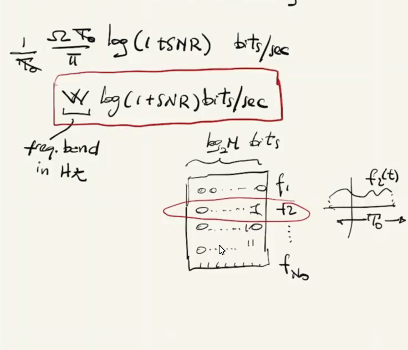 1/T₀ ΩT₀/π log(1+SNR) bits/sec
W log(1+SNR) bits/sec
freq. band
in Hz
log₂M bits
oo....o f₁
o......1 f₂
o....10 ⋮
o.... 11 f_N₀
f₂(t)
T₀